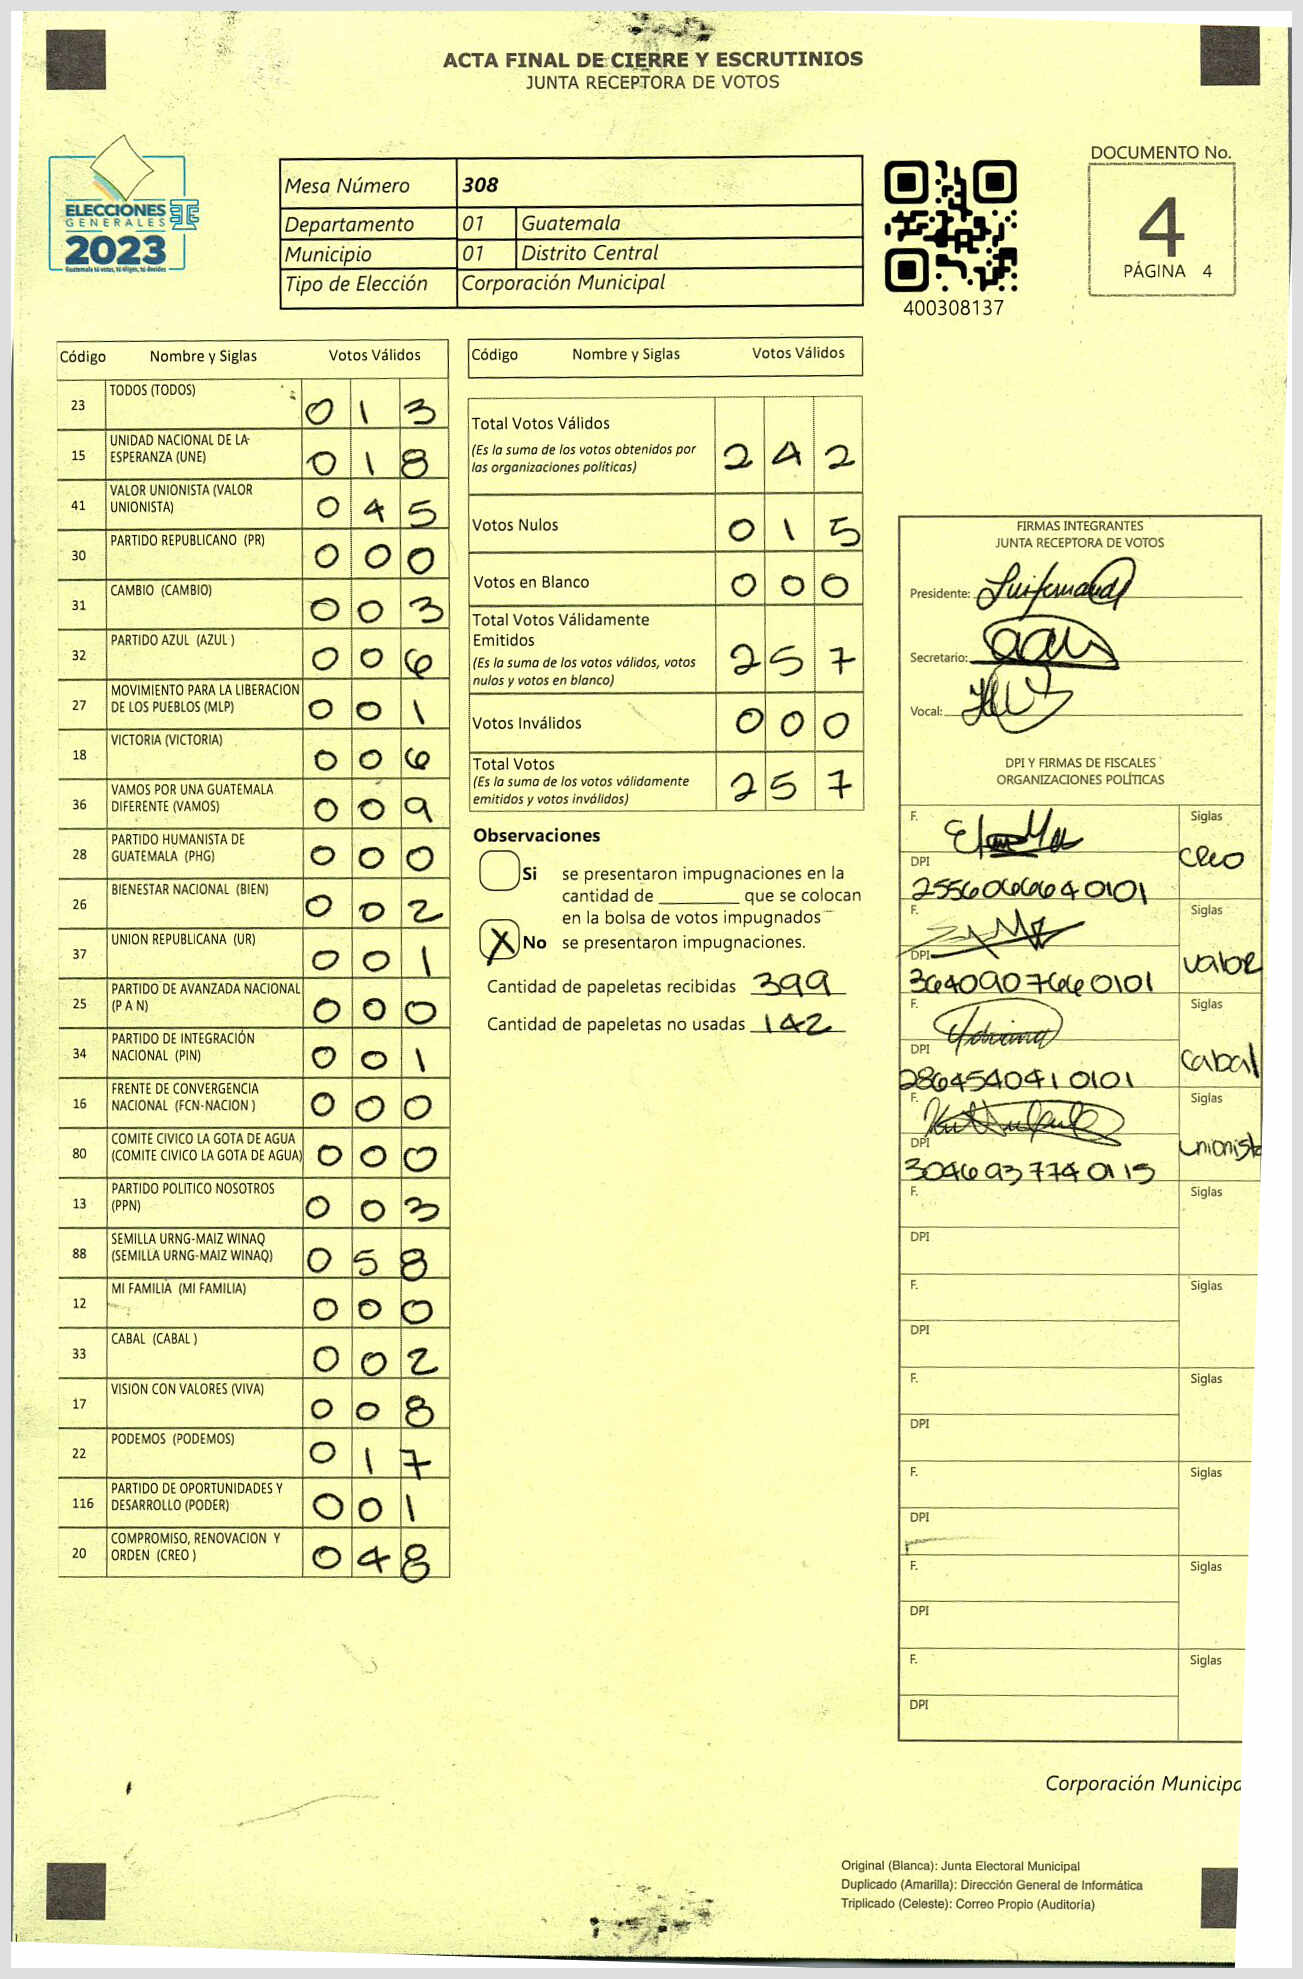 ACTA FINAL DE CIERRE Y ESCRUTINIOS
JUNTA RECEPTORA DE VOTOS
ELECCIONES
GENERALES
2023
Guatemala tú votas, tú eliges, tú decides
Mesa Número 308
Departamento 01 Guatemala
Municipio 01 Distrito Central
Tipo de Elección Corporación Municipal
400308137
DOCUMENTO No.
4
PÁGINA 4
Código Nombre y Siglas Votos Válidos
23 TODOS (TODOS) 0 1 3
15 UNIDAD NACIONAL DE LA
ESPERANZA (UNE) 0 1 8
41 VALOR UNIONISTA (VALOR
UNIONISTA) 0 4 5
30 PARTIDO REPUBLICANO (PR) 0 0 0
31 CAMBIO (CAMBIO) 0 0 3
32 PARTIDO AZUL (AZUL ) 0 0 6
27 MOVIMIENTO PARA LA LIBERACION
DE LOS PUEBLOS (MLP) 0 0 1
18 VICTORIA (VICTORIA) 0 0 6
36 VAMOS POR UNA GUATEMALA
DIFERENTE (VAMOS) 0 0 9
28 PARTIDO HUMANISTA DE
GUATEMALA (PHG) 0 0 0
26 BIENESTAR NACIONAL (BIEN) 0 0 2
37 UNION REPUBLICANA (UR) 0 0 1
25 PARTIDO DE AVANZADA NACIONAL
(P A N) 0 0 0
34 PARTIDO DE INTEGRACIÓN
NACIONAL (PIN) 0 0 1
16 FRENTE DE CONVERGENCIA
NACIONAL (FCN-NACION ) 0 0 0
80 COMITE CIVICO LA GOTA DE AGUA
(COMITE CIVICO LA GOTA DE AGUA) 0 0 0
13 PARTIDO POLITICO NOSOTROS
(PPN) 0 0 3
88 SEMILLA URNG-MAIZ WINAQ
(SEMILLA URNG-MAIZ WINAQ) 0 5 8
12 MI FAMILIA (MI FAMILIA) 0 0 0
33 CABAL (CABAL ) 0 0 2
17 VISION CON VALORES (VIVA) 0 0 8
22 PODEMOS (PODEMOS) 0 1 7
116 PARTIDO DE OPORTUNIDADES Y
DESARROLLO (PODER) 0 0 1
20 COMPROMISO, RENOVACION Y
ORDEN (CREO ) 0 4 8
Código Nombre y Siglas Votos Válidos
Total Votos Válidos
(Es la suma de los votos obtenidos por
las organizaciones políticas) 2 4 2
Votos Nulos 0 1 5
Votos en Blanco 0 0 0
Total Votos Válidamente
Emitidos
(Es la suma de los votos válidos, votos
nulos y votos en blanco) 2 5 7
Votos Inválidos 0 0 0
Total Votos
(Es la suma de los votos válidamente
emitidos y votos inválidos) 2 5 7
Observaciones
Si se presentaron impugnaciones en la
cantidad de ________ que se colocan
en la bolsa de votos impugnados
X No se presentaron impugnaciones.
Cantidad de papeletas recibidas 399
Cantidad de papeletas no usadas 142
FIRMAS INTEGRANTES
JUNTA RECEPTORA DE VOTOS
Presidente:
Secretario:
Vocal:
DPI Y FIRMAS DE FISCALES
ORGANIZACIONES POLÍTICAS
F. Siglas
DPI creo
2556066640101
F. Siglas
DPI valor
3640907660101
F. Siglas
DPI cabal
2864540410101
F. Siglas
DPI unionista
3046937740115
F. Siglas
DPI
F. Siglas
DPI
F. Siglas
DPI
F. Siglas
DPI
F. Siglas
DPI
F. Siglas
DPI
Corporación Municipa
Original (Blanca): Junta Electoral Municipal
Duplicado (Amarilla): Dirección General de Informática
Triplicado (Celeste): Correo Propio (Auditoría)